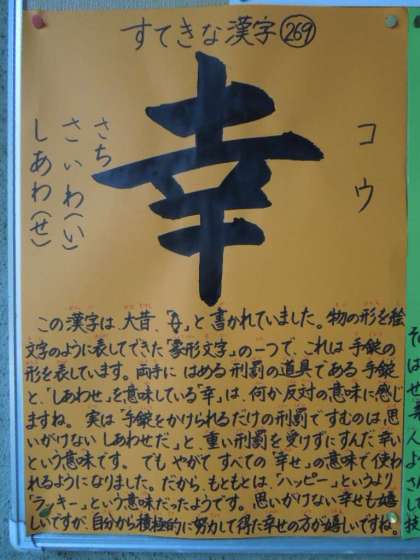 すてきな漢字 269
幸
コウ
さち
さいわ(い)
しあわ(せ)
この漢字は、大昔、「」と書かれていました。物の形を絵
文字のように表してできた「象形文字」の一つで、これは手錠の
形を表しています。両手にはめる刑罰の道具である手錠
と、「しあわせ」を意味している「幸」は、何か反対の意味に感じ
ますね。実は「手錠をかけられるだけの刑罰ですむのは、思
いがけないしあわせだ」と、重い刑罰を受けずにすんだ幸い
という意味です。でもやがてすべての「幸せ」の意味で使わ
れるようになりました。だから、もともとは、「ハッピー」というより
「ラッキー」という意味だったようです。思いがけない幸せも嬉し
いですが、自分から積極的に努力して得た幸せの方が嬉しいですね。